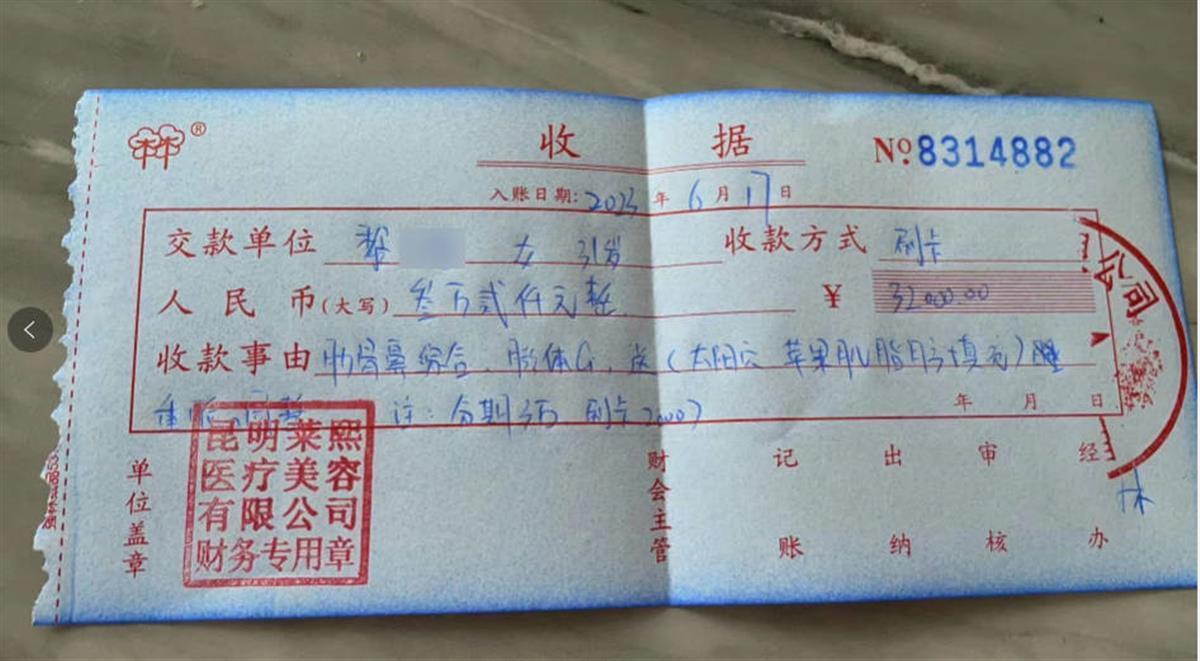 ®
收 据 №8314882
入账日期: 2023 年 6 月 17 日
交款单位 女 31岁 收款方式 刷卡
人民币(大写) 叁万贰仟元整 ¥ 32000.00
收款事由 肋骨鼻综合、膨体G、送(太阳穴 苹果肌脂肪填充)
注: 分期3万 刷卡2000) 年 月 日
单位盖章
昆明莱熙
医疗美容
有限公司
财务专用章
财会主管
记账
出纳
审核
经办
林
公司